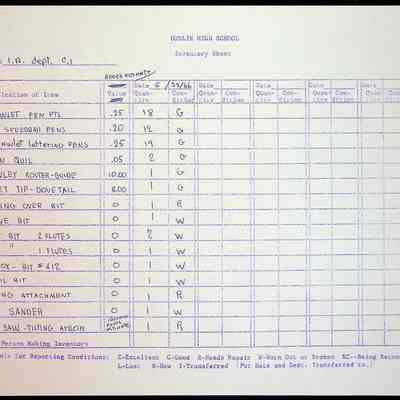 HIGH SCHOOL
Inventory Sheet
I.A. dept. C.1
ation of Item Value Date 5/22/86 Date Date Date
Quan- tity Con- dition Quan- tity Con- dition Quan- tity Con- dition Quan- tity
PEN PTS. .25 18 G
SPEEDBALL PENS .20 12 G
lettering PENS .25 19 G
QUIL .05 2 G
ROUTER-GUIDE 10.00 1 G
ET TIP-DOVETAIL 8.00 1 G
ING OVER BIT 0 1 R
BIT 0 1 W
BIT 2 FLUTES 0 2 W
" 1 FLUTES 0 1 W
BIT #612 0 1 W
BIT 0 1 W
NG ATTACHMENT 0 1 R
SANDER 0 1 W
SAW-TILTING ARBOR 1 R
Person Making Inventory
for Reporting Conditions: E-Excellent G-Good R-Needs Repair W-Worn Out or Broken
L-Lost N-New T-Transferred (Put Date and Dept. Transferred to.)